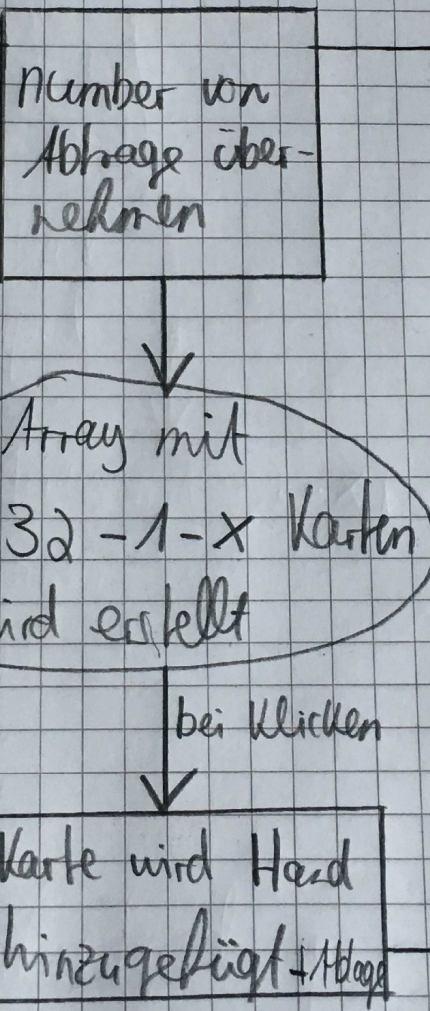 number von
Abfrage über-
nehmen
Array mit
32 - 1 - x Karten
ird erstellt
bei Klicken
Karte wird Hand
hinzugefügt + Ablage